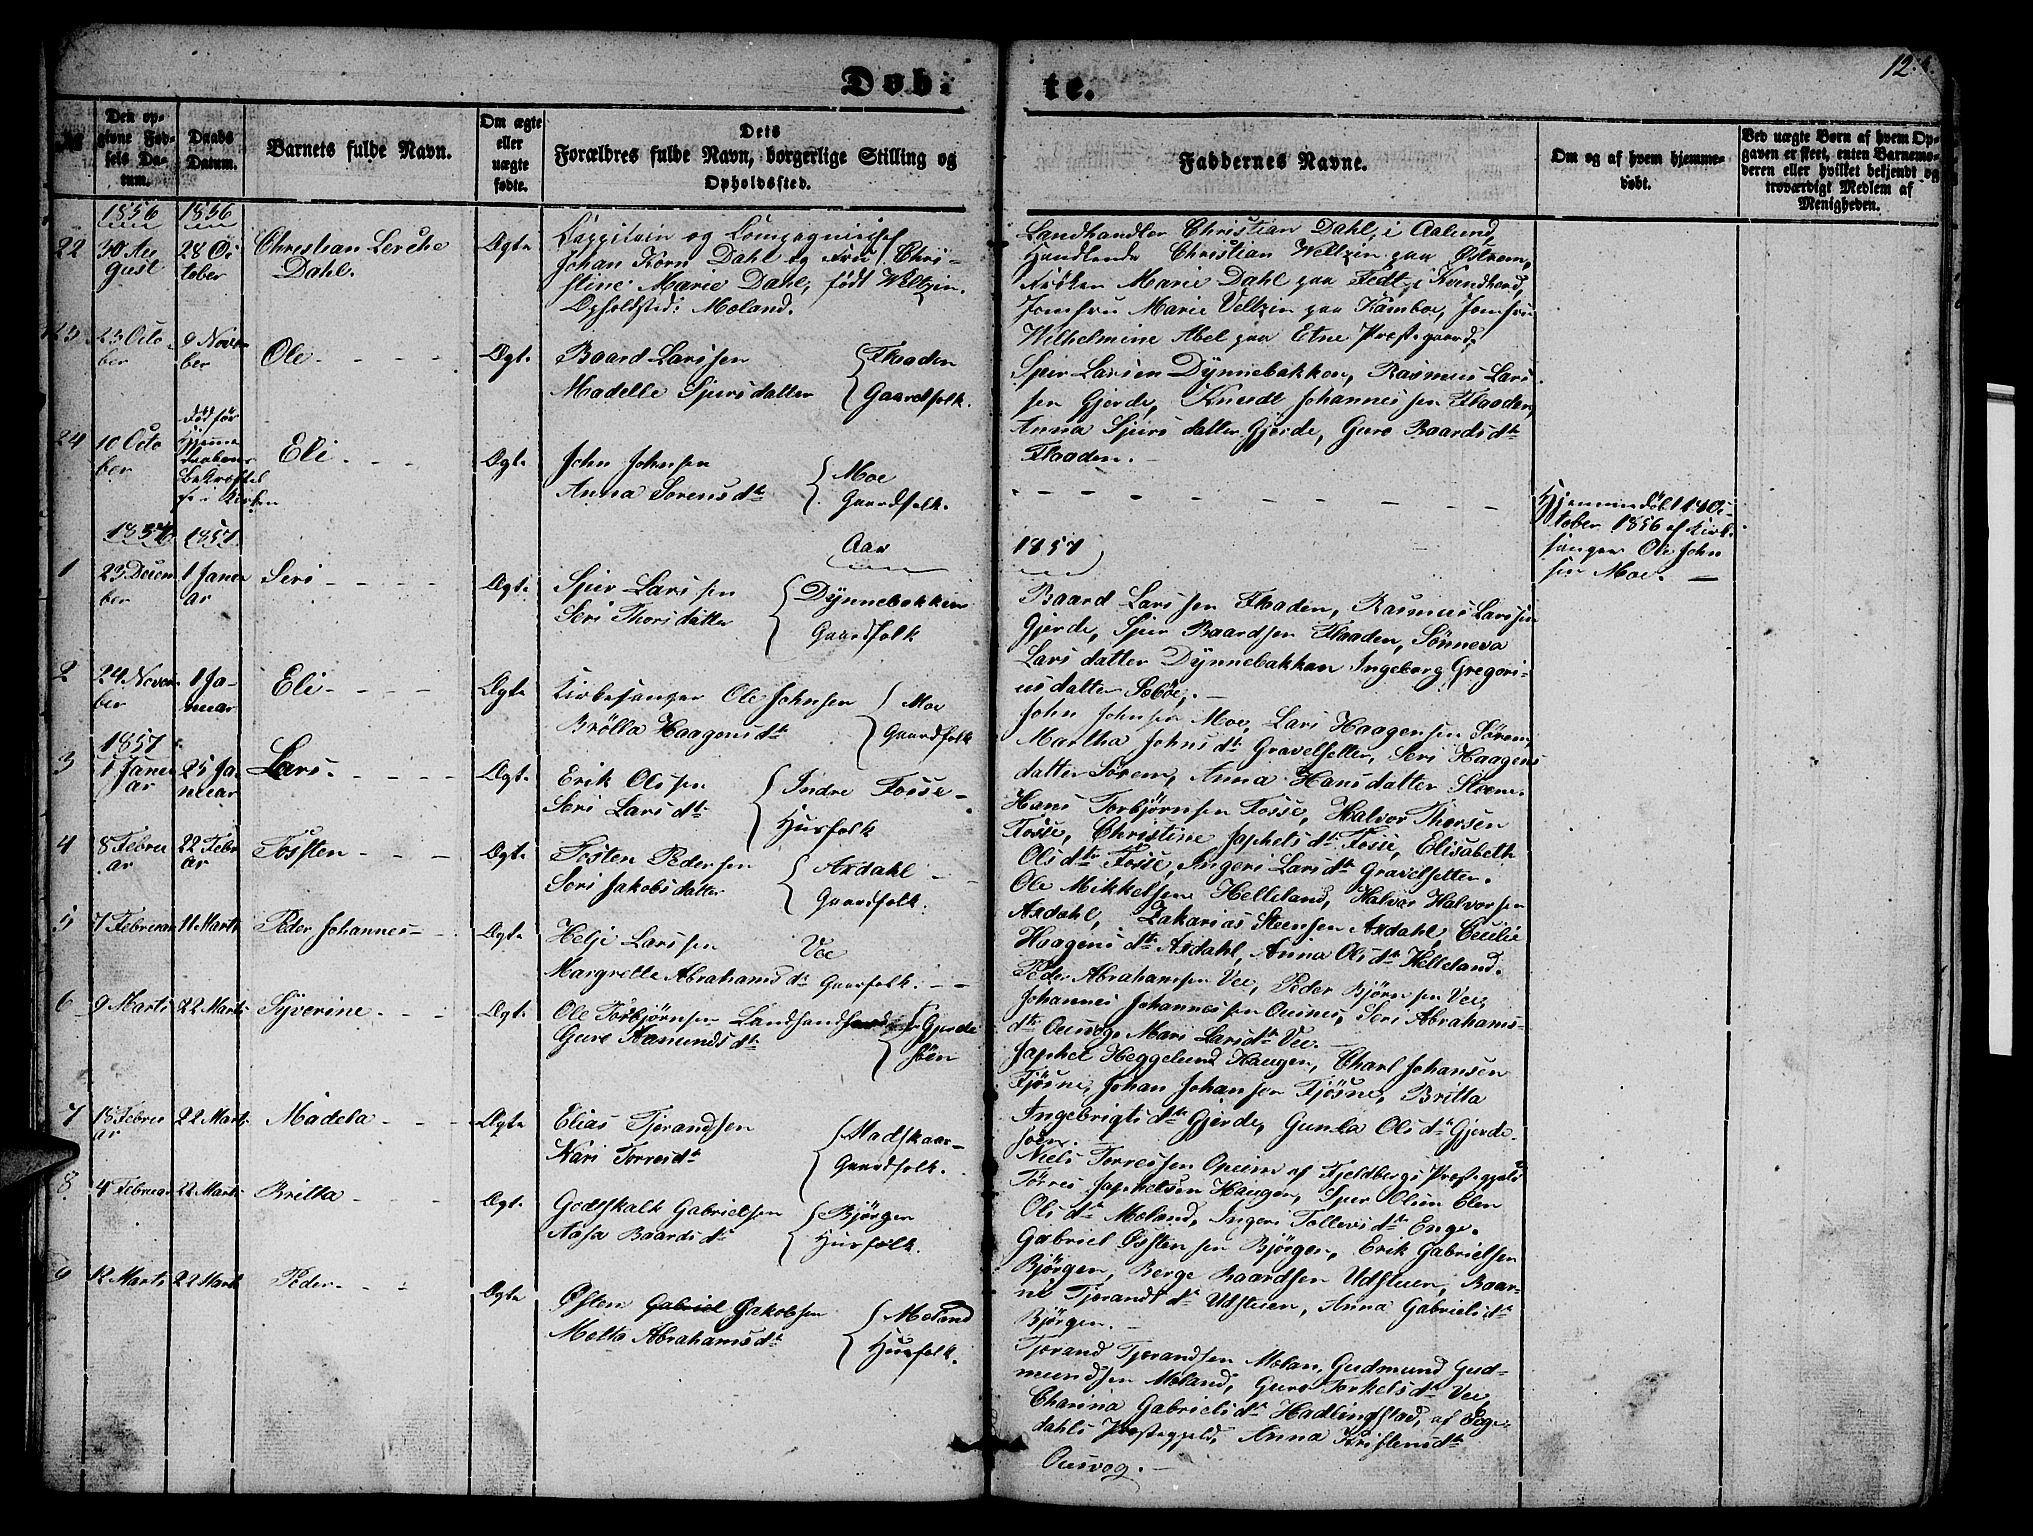 Døb-
te.
12.
No
Den opgivne Fødsels Datum.
Daabs Datum.
Barnets fulde Navn.
Om ægte eller uægte fødte.
Dets Forældres fulde Navn, borgerlige Stilling og Opholdssted.
Faddernes Navne.
Om og af hvem hjemmedøbt.
Ved uægte Børn af hvem Opgaven er skeet, enten Barnemoderen eller hvilket bekjendt og troværdigt Medlem af Menigheden.
1856 1856
22 30 August 28 October Christian Lerche Dahl. Ægte
Cappitain og Compagnichef
Johan Korn Dahl og Frue Chri-
stine Marie Dahl, født Weltzin.
Opholdsted: Moland.
Landhandler Christian Dahl, i Aalund,
Handlende Christian Weltzin paa Østrem,
Frøken Marie Dahl paa Fedt i Kvindherd,
Jomfru Marie Veltzin paa Kamboe, Jomfru
Wilhelmine Abel paa Etne Præstegaard.
23 23 October 9 November Ole. Ægte
Baard Larssen Flaaden
Madelle Sjursdatter Gaardfolk.
Sjur Larsen Dynnebakken, Rasmus Lars
sen Gjerde, Knudt Johannessen Flaaden,
Anna Sjursdatter Gjerde, Guro Baardsdtr
Flaaden.
24 10 October Eli. Ægte
John Johnsen Moe
Anna Sørensdtr Gaardfolk.
Hjemmedøbt 14 Oc-
tober 1856 af Kirke-
sanger Ole John
sen Moe.
1851
Aar 1857
1 23 December 1 Januar Seri Ægte
Sjur Larssen Dynnebakken
Seri Thorsdatter Gaardfolk
Baard Larssen Flaaden, Rasmus Larssen
Gjerde, Sjur Baardsen Flaaden, Sønneva
Larsdatter Dynnebakken Ingeborg Gregori-
usdatter Sebøe.
2 24 November 1 Januar Eli Ægte
Kirkesanger Ole Johnsen Moe
Brølla Haagensdtr Gaardfolk
John Johnsen Moe, Lars Haagensen Sørem,
Martha Johnsdtr Gravelseller, Seri Haagens
datter Sørem, Anna Hansdatter Steene.
1857
3 1 Januar 25 Januar Lars. Ægte
Erik Olssen Indre Fosse
Seri Larsdtr Husfolk
Hans Torbjørnsen Fosse, Halvor Thorsen
Fosse, Christine Japhetsdtr Fosse, Elisabeth
Olsdtr Fosse, Ingeri Larsdtr Gravelsetter.
4 8 Februar 22 Februar Tossten Ægte
Tosten Pedersen Axdahl
Seri Jakobsdatter Gaardfolk.
Ole Mikkelsen Helleland, Halvor Halvorsen
Axdahl, Zakarias Steensen Axdahl, Cecilie
Haagensdtr Axdahl, Anna Olsdtr Helleland.
5 7 Februar 11 Marts Peder Johannes Ægte
Helje Larssen Vee
Margrette Abrahamsdtr Gaarfolk.
Peder Abrahamsen Vee, Peder Bjørnsen Vee,
Johannes Johannessen Ousnes, Seri Abrahams-
dtr Ousvog, Mari Larsdtr Vee.
6 9 Marts 22 Marts Syverine Ægte
Ole Torbjørnsen Gjerde
Guro Aamundsdtr søen
Japhet Heggelund Haugen, Charl Johansen
Fjøsne, Johan Johansen Fjøsne, Britta
Ingebrigtsdtr Gjerde, Gunla Olsdtr Gjerde-
søen.
7 18 Februar 22 Marts Madela Ægte
Elias Tjerandsen Stadskaar
Kari Torresdtr Gaardfolk.
Niels Torressen Opeim af Fjeldbergs Præstegjeld
Tørres Japhetsen Haugen, Sjur Olsen Elen
Olsdtr Moland, Ingeri Tollevsdtr Enge.
8 4 Februar 22 Marts Britta Ægte
Godtskalk Gabrielsen Bjørgen
Aasa Baardsdtr Husfolk.
Gabriel Østensen Bjørgen, Erik Gabrielsen
Bjørgen, Berge Baardsen Udstuen, Baar-
ni Tjerandsdtr Udstuen, Anna Gabrielsdtr
Bjørgen.
9 12 Marts 22 Marts Peder Ægte
Østen Gabriel Jakobsen Moland
Molta Abrahamsdtr Husfolk.
Tjerand Tjerandsen Molan, Gudmund Gud-
mundsen Moland, Guro Torkelsdtr Vee,
Charina Gabrielsdtr Hadlingstad, af Soge-
dahls Præstegjeld, Anna Kristensdtr
Ousvog.